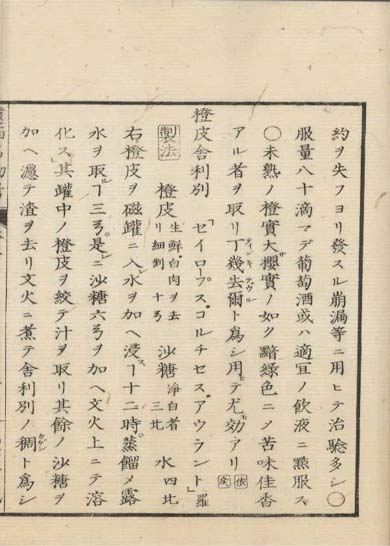 約ヲ失フヨリ發スル崩漏等ニ用ヒテ治驗多シ○
服量八十滴マデ葡萄酒或ハ適宜ノ飲液ニ㸃服ス
○未熟ノ橙實大サ櫻實ノ如ク黯緑色ニノ苦味佳香
アル者ヲ取リ丁幾去爾ト爲シ用ヒテ尤モ効アリ
橙皮舎利別「セイロープス、コルチセス、アウラント」羅
製法 橙皮 生鮮白肉ヲ去リ細剉 十ヲ 沙糖 淨白者 三比 水 四比
右橙皮ヲ磁罐ニ入レ水ヲ加ヘ浸スヿ十二時蒸餾〆露
水ヲ取ルヿ三ヲ是ニ沙糖六ヲヲ加ヘ文火上ニテ溶
化ス其罐中ノ橙皮ヲ絞テ汁ヲ取リ其餘ノ沙糖ヲ
加ヘ濾テ渣ヲ去リ文火ニ煮テ舎利別ノ稠ト爲シ